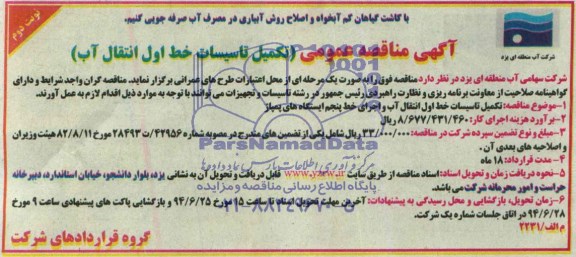 با کاشت گیاهان کم آبخواه و اصلاح روش آبیاری در مصرف آب صرفه جویی کنیم.
نوبت دوم
آگهی مناقصه عمومی (تکمیل تاسیسات خط اول انتقال آب)
شرکت آب منطقه ای یزد
شرکت سهامی آب منطقه ای یزد در نظر دارد مناقصه فوق را به صورت یک مرحله ای از محل اعتبارات طرح های عمرانی برگزار نماید. مناقصه گران واجد شرایط و دارای
گواهینامه صلاحیت از معاونت برنامه ریزی و نظارت راهبردی رئیس جمهور در رشته تاسیسات و تجهیزات می توانند با توجه به موارد ذیل اقدام لازم به عمل آورند.
۱-موضوع مناقصه: تکمیل تاسیسات خط اول انتقال آب و اجرای خط پنجم ایستگاه های پمپاژ
۲- برآورد هزینه اجرای کار: ۸/۶۷۷/۴۳۱/۴۶۰ ریال
۳-مبلغ و نوع تضمین سپرده شرکت در مناقصه: ۳۳۰/۰۰۰/۰۰۰ ریال شامل یکی از تضمین های مندرج در مصوبه شماره ۴۲۹۵۶/ت ۲۸۴۹۳ مورخ ۸۲/۸/۱۱ هیئت وزیران
و اصلاحیه های بعدی آن.
۴-مدت قرارداد: ۱۸ ماه
۵-نحوه دریافت زمان و تحویل اسناد: اسناد مناقصه از طریق سایت www.yzrw.ir قابل دریافت و تحویل آن به نشانی یزد، بلوار دانشجو، خیابان استاندارد، دبیرخانه
حراست و امور محرمانه شرکت می باشد.
۶-زمان تحویل، بازگشایی و محل رسیدگی به پیشنهادات: آخرین مهلت تحویل اسناد تا ساعت ۱۵ مورخ ۹۴/۶/۲۵ و بازگشایی پاکت های پیشنهادی ساعت ۹ مورخ
۹۴/۶/۲۸ در اتاق جلسات شماره یک شرکت.
م الف/۲۲۳۱
گروه قراردادهای شرکت
ParsNamadData
پایگاه اطلاع رسانی مناقصه و مزایده
۰۲۱-۸۸۳۴۹۶۷۰-۵